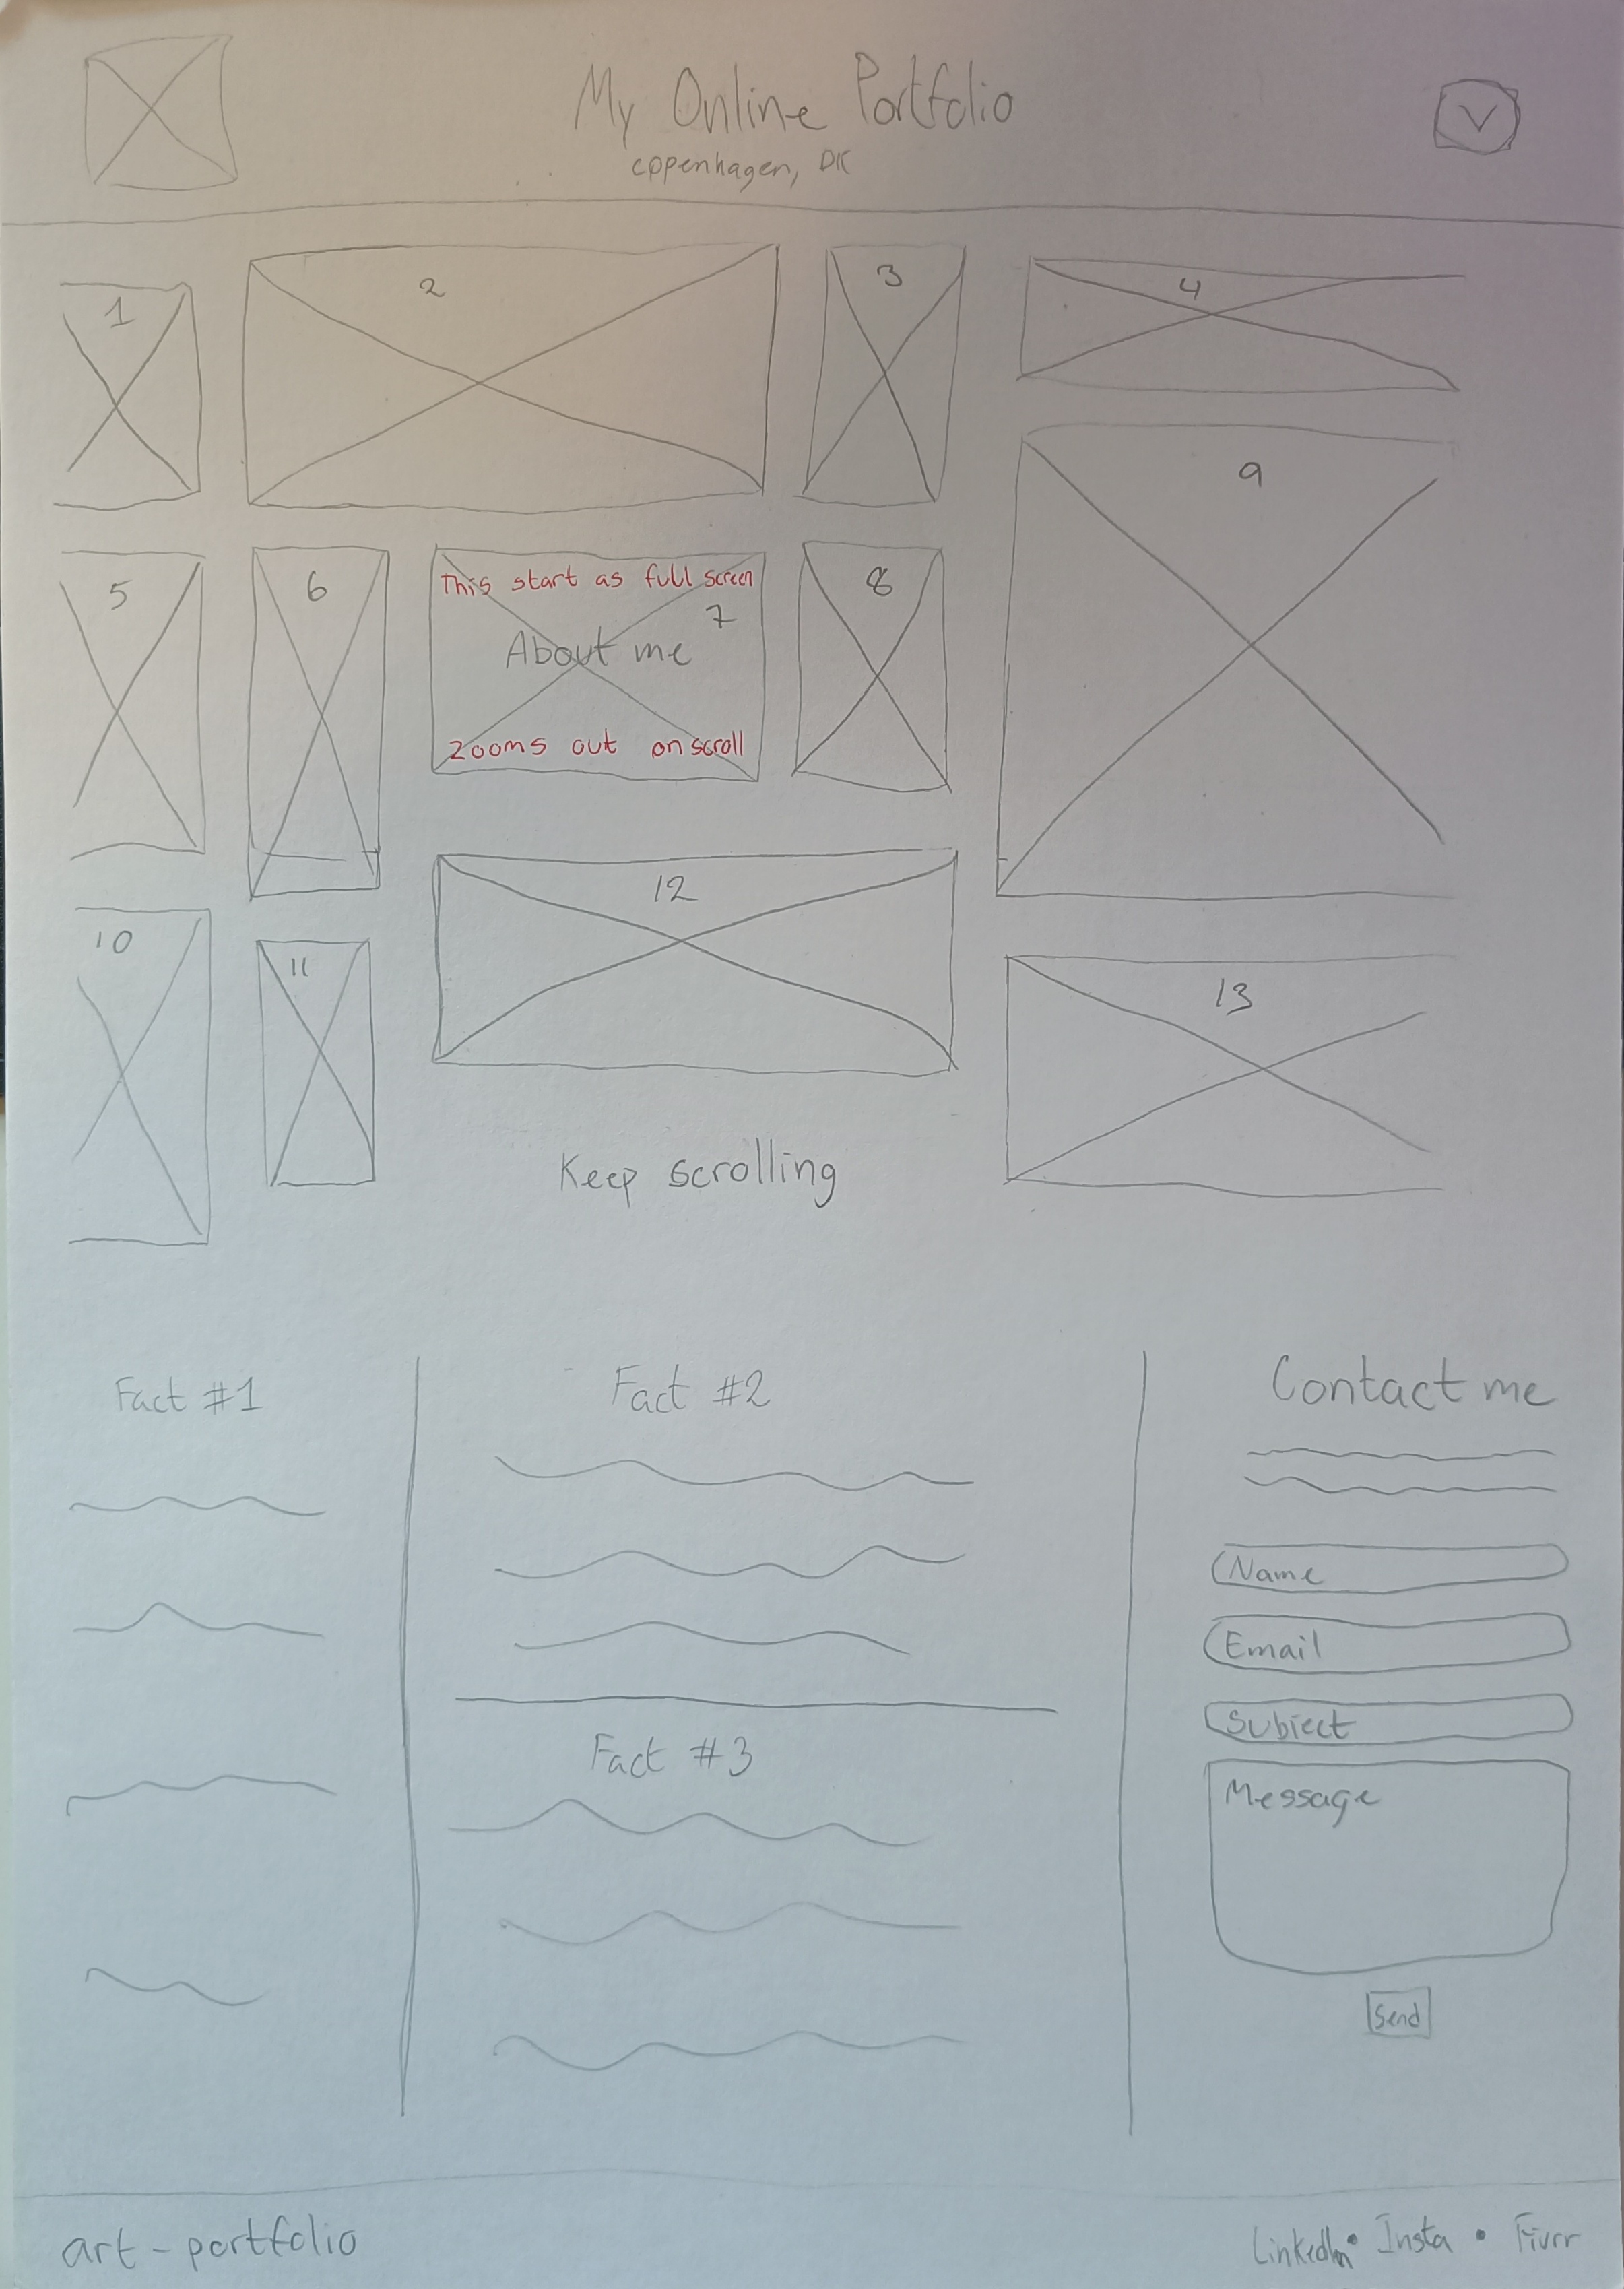 My Online Portfolio
copenhagen, DK
V
1
2
3
4
5
6
This start as full screen
7
About me
Zooms out on scroll
8
9
10
11
12
13
Keep scrolling
Fact #1
Fact #2
Fact #3
Contact me
Name
Email
Subject
Message
Send
art - portfolio
LinkedIn • Insta • Fivrr